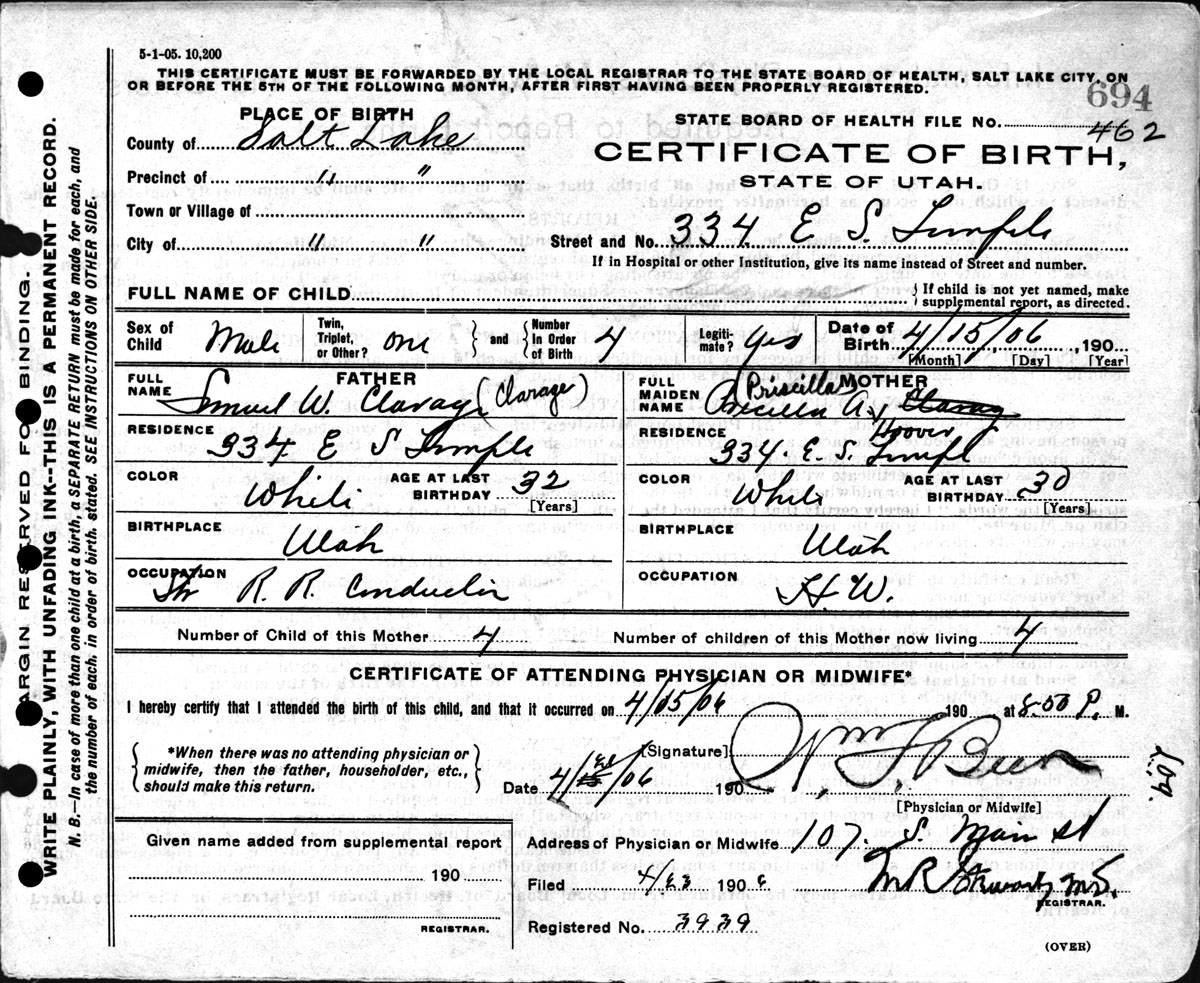 5-1-05. 10,200
THIS CERTIFICATE MUST BE FORWARDED BY THE LOCAL REGISTRAR TO THE STATE BOARD OF HEALTH, SALT LAKE CITY, ON
OR BEFORE THE 5TH OF THE FOLLOWING MONTH, AFTER FIRST HAVING BEEN PROPERLY REGISTERED.
694
PLACE OF BIRTH
STATE BOARD OF HEALTH FILE No. 462
County of Salt Lake
CERTIFICATE OF BIRTH,
Precinct of " "
STATE OF UTAH.
Town or Village of
City of " "
Street and No. 334 E S. Temple
If in Hospital or other Institution, give its name instead of Street and number.
FULL NAME OF CHILD
{ If child is not yet named, make
supplemental report, as directed.
Sex of Child Male
Twin, Triplet, or Other? one
} and { Number In Order of Birth 4
Legiti-mate? Yes
Date of Birth 4/15/06, 190
[Month] [Day] [Year]
FATHER
FULL NAME Samuel W. Clarage (Clarage)
RESIDENCE
334 E S Temple
COLOR White
AGE AT LAST BIRTHDAY 32
[Years]
BIRTHPLACE
Utah
OCCUPATION
R. R. Conductor
MOTHER
FULL MAIDEN NAME Priscilla
A.
Hoover
RESIDENCE
334. E. S. Templ
COLOR White
AGE AT LAST BIRTHDAY 30
[Years]
BIRTHPLACE
Utah
OCCUPATION
H. W.
Number of Child of this Mother 4
Number of children of this Mother now living 4
CERTIFICATE OF ATTENDING PHYSICIAN OR MIDWIFE*
I hereby certify that I attended the birth of this child, and that it occurred on 4/15/06 190 at 8-50 P. M.
{ *When there was no attending physician or
midwife, then the father, householder, etc.,
should make this return. }
[Signature] Wm F Beer
Date 4/ /06 190
[Physician or Midwife]
Address of Physician or Midwife 107. S. Main st
Given name added from supplemental report
190
REGISTRAR.
Filed 4/23 190 6
M R Stewart, M.D.
REGISTRAR.
Registered No. 3939
(OVER)
MARGIN RESERVED FOR BINDING.
WRITE PLAINLY, WITH UNFADING INK--THIS IS A PERMANENT RECORD.
N. B.--In case of more than one child at a birth, a SEPARATE RETURN must be made for each, and
the number of each, in order of birth, stated. SEE INSTRUCTIONS ON OTHER SIDE.